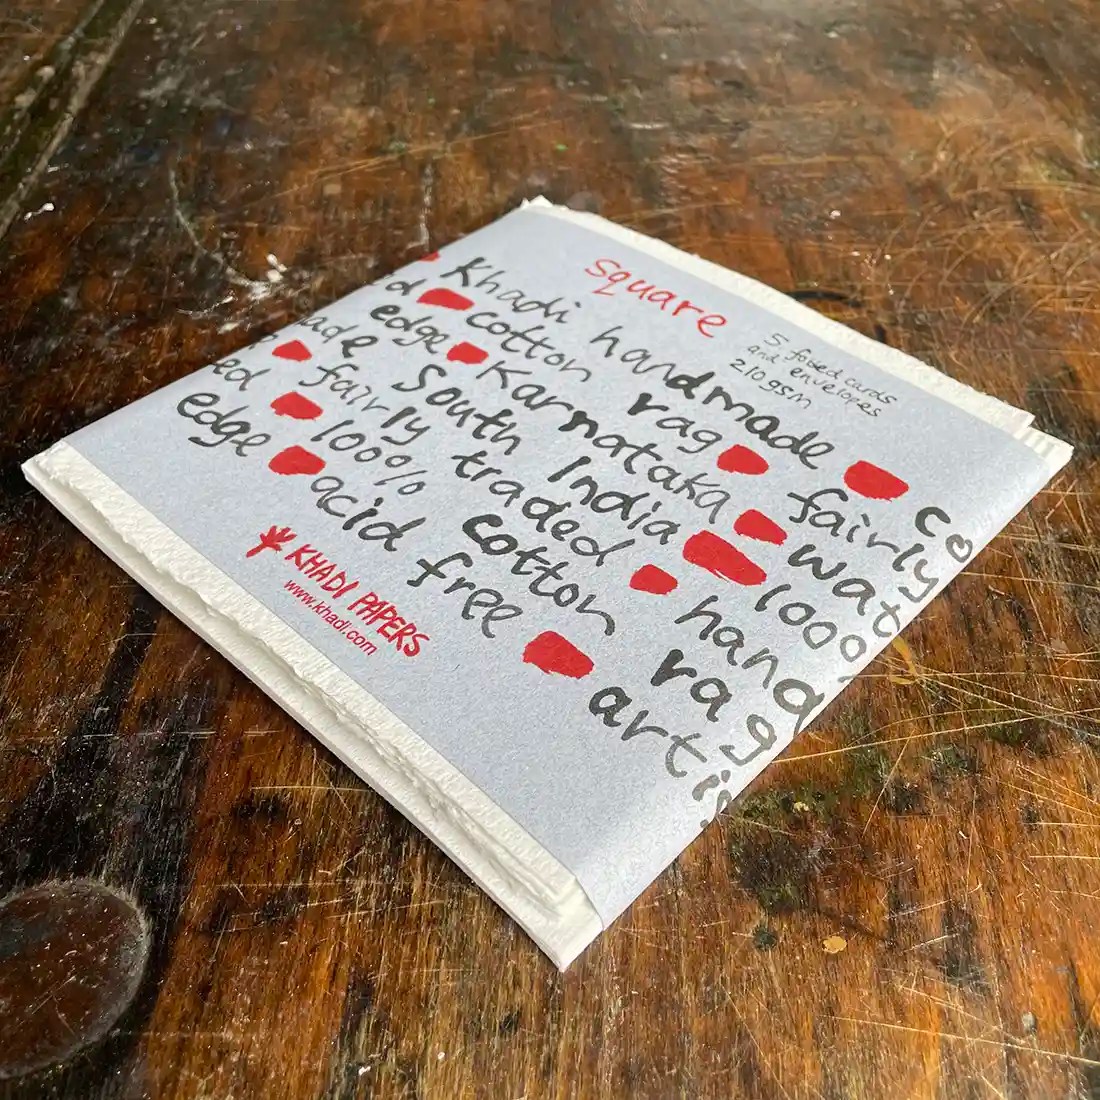 square
5 foled cards
and envelopes
210gsm
Khadi handmade co
d cotton rag fairly
edge Karnataka wat
ade South India 100%
fairly traded hand
ed 100% cotton rag
edge acid free arti
KHADI PAPERS
www.khadi.com